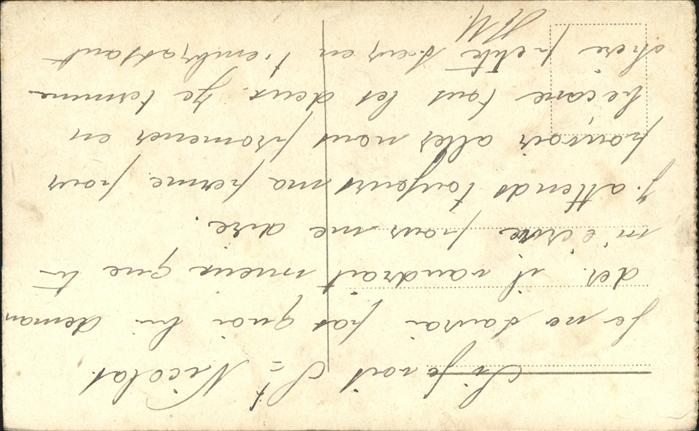 St Nicolas
Je ne saurai pas quoi lui deman
der. il vaudrait mieux que tu
m'écrive pour me dire.
J'attends toujours ma perme pour
pouvoir aller nous promener en
bécane tous les deux. Je termine
chère petite sœur en t'embrassant